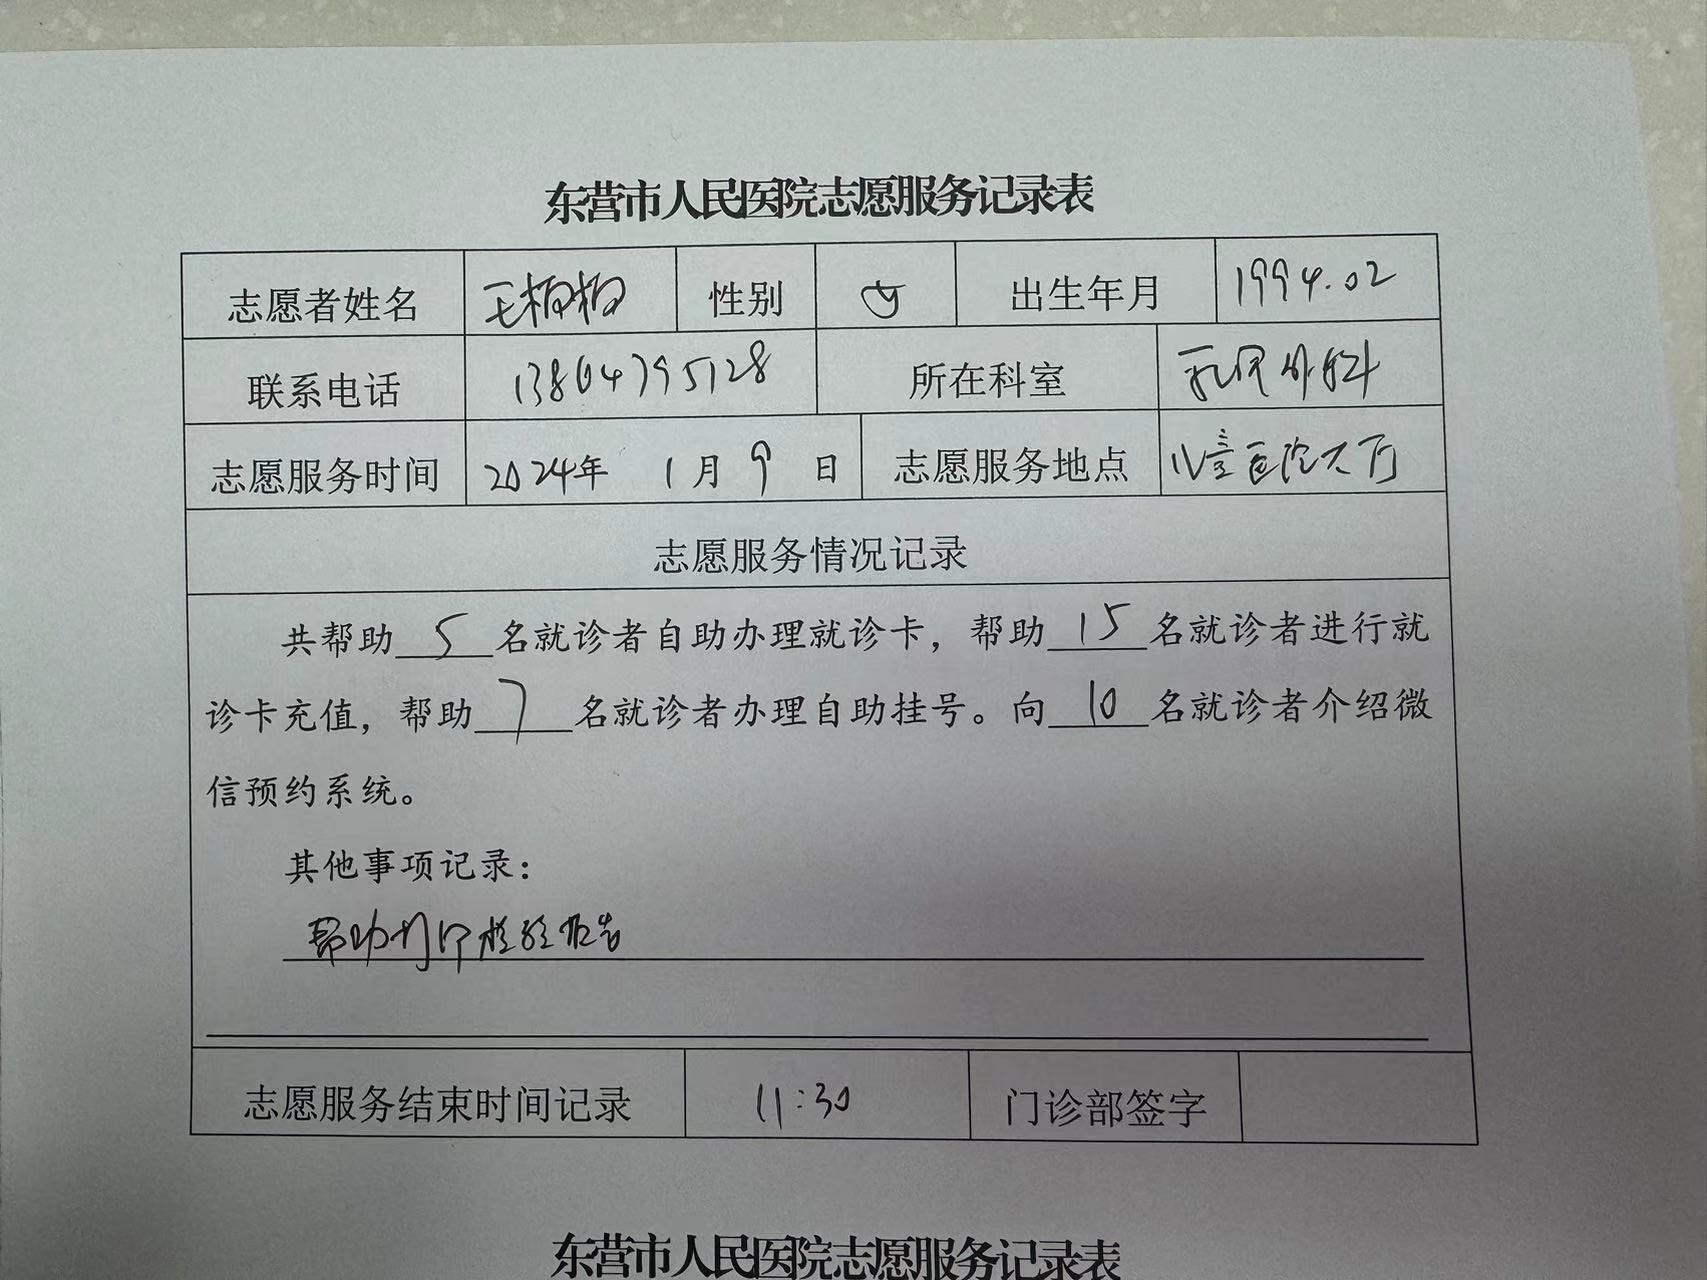 东营市人民医院志愿服务记录表
志愿者姓名 王柏柏 性别 女 出生年月 1994.02
联系电话 13864795128 所在科室 乳甲外科
志愿服务时间 2024年 1月9日 志愿服务地点 儿童医院大厅
志愿服务情况记录
共帮助 5 名就诊者自助办理就诊卡，帮助 15 名就诊者进行就
诊卡充值，帮助 7 名就诊者办理自助挂号。向 10 名就诊者介绍微
信预约系统。
其他事项记录：
帮助打印检验报告
志愿服务结束时间记录 11:30 门诊部签字
东营市人民医院志愿服务记录表